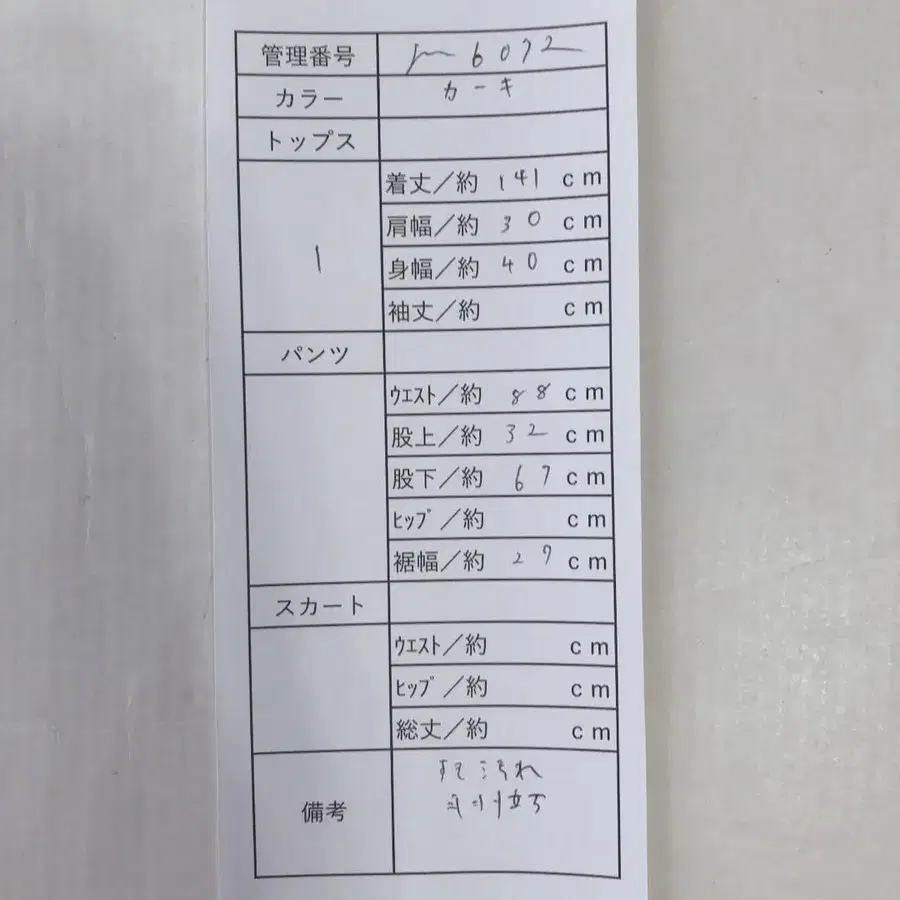 管理番号 6072
カラー カーキ
トップス
1
着丈／約 141 cm
肩幅／約 30 cm
身幅／約 40 cm
袖丈／約 cm
パンツ
ｳｴｽﾄ／約 88 cm
股上／約 32 cm
股下／約 67 cm
ﾋｯﾌﾟ／約 cm
裾幅／約 27 cm
スカート
ｳｴｽﾄ／約 cm
ﾋｯﾌﾟ／約 cm
総丈／約 cm
備考
すそ汚れ
立ち